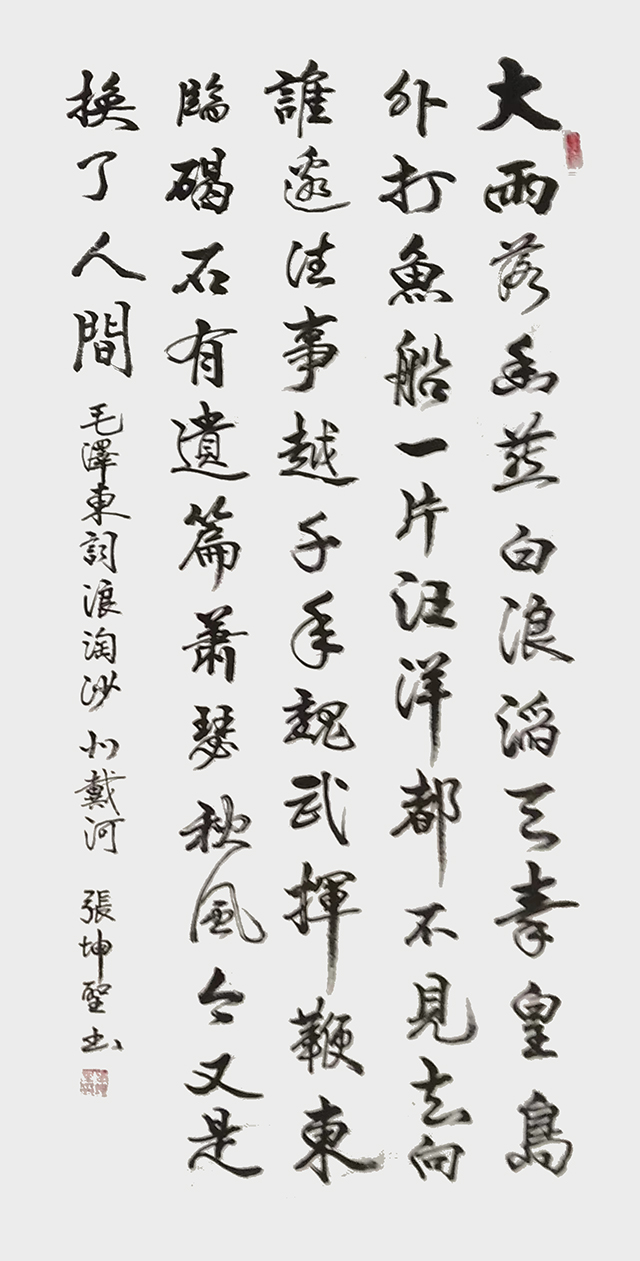 大雨落幽燕白浪滔天秦皇島
外打魚船一片汪洋都不見知向
誰邊往事越千年魏武揮鞭東
臨碣石有遺篇蕭瑟秋風今又是
換了人間
毛澤東詞浪淘沙北戴河 張坤聖书